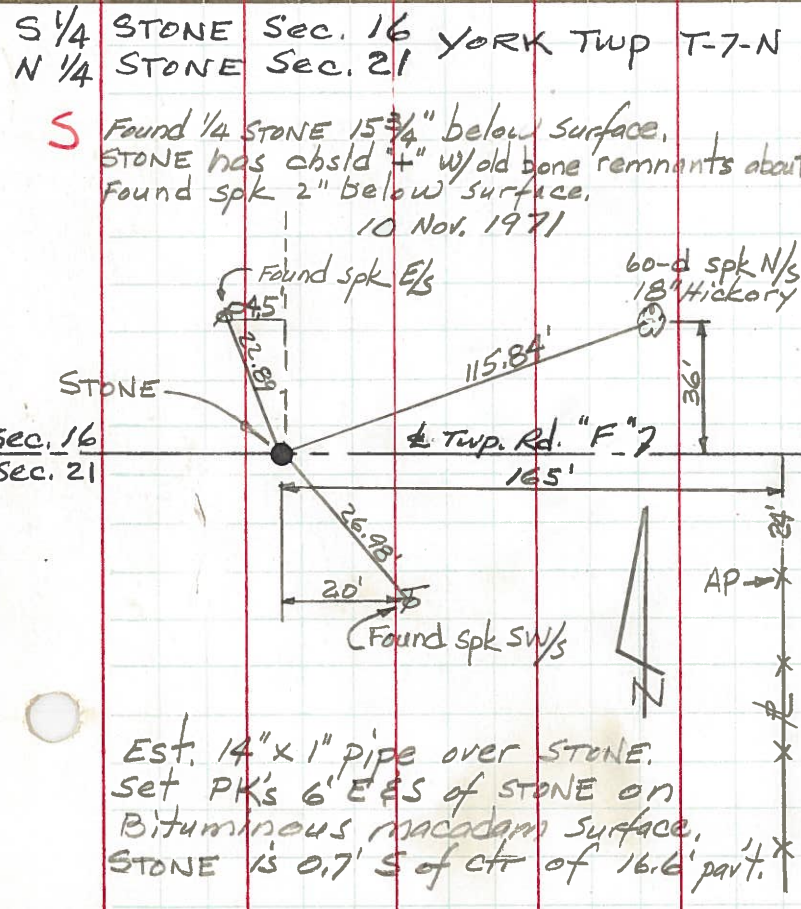 S 1/4 STONE Sec. 16 YORK TWP T-7-N
N 1/4 STONE Sec. 21
S Found 1/4 STONE 15 3/4" below surface.
STONE has chsld "+" w/old bone remnants about
Found spk 2" below surface.
10 Nov. 1971
Found spk E/s
60-d spk N/s
18" Hickory
4.5'
22.89
115.84'
36'
STONE
Sec. 16
℄ Twp. Rd. "F" 7
Sec. 21
165'
26.98'
24'
20'
AP
Found spk SW/s
N
℄
Est. 14" x 1" pipe over STONE.
Set PK's 6' E & S of STONE on
Bituminous macadam surface.
STONE is 0.7' S of ctr of 16.6' pav't.